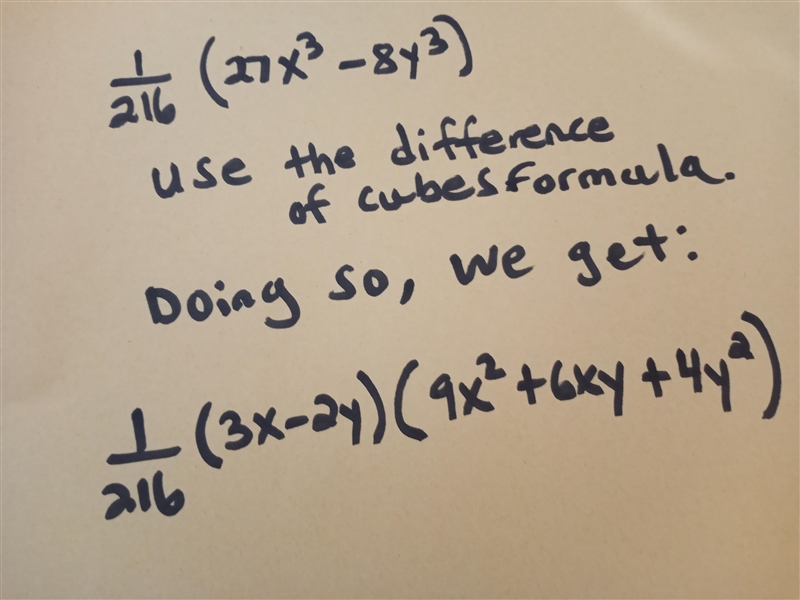 1/216 (27x³ - 8y³)
use the difference
of cubes formula.
Doing so, we get:
1/216 (3x-2y)(9x² + 6xy + 4y²)